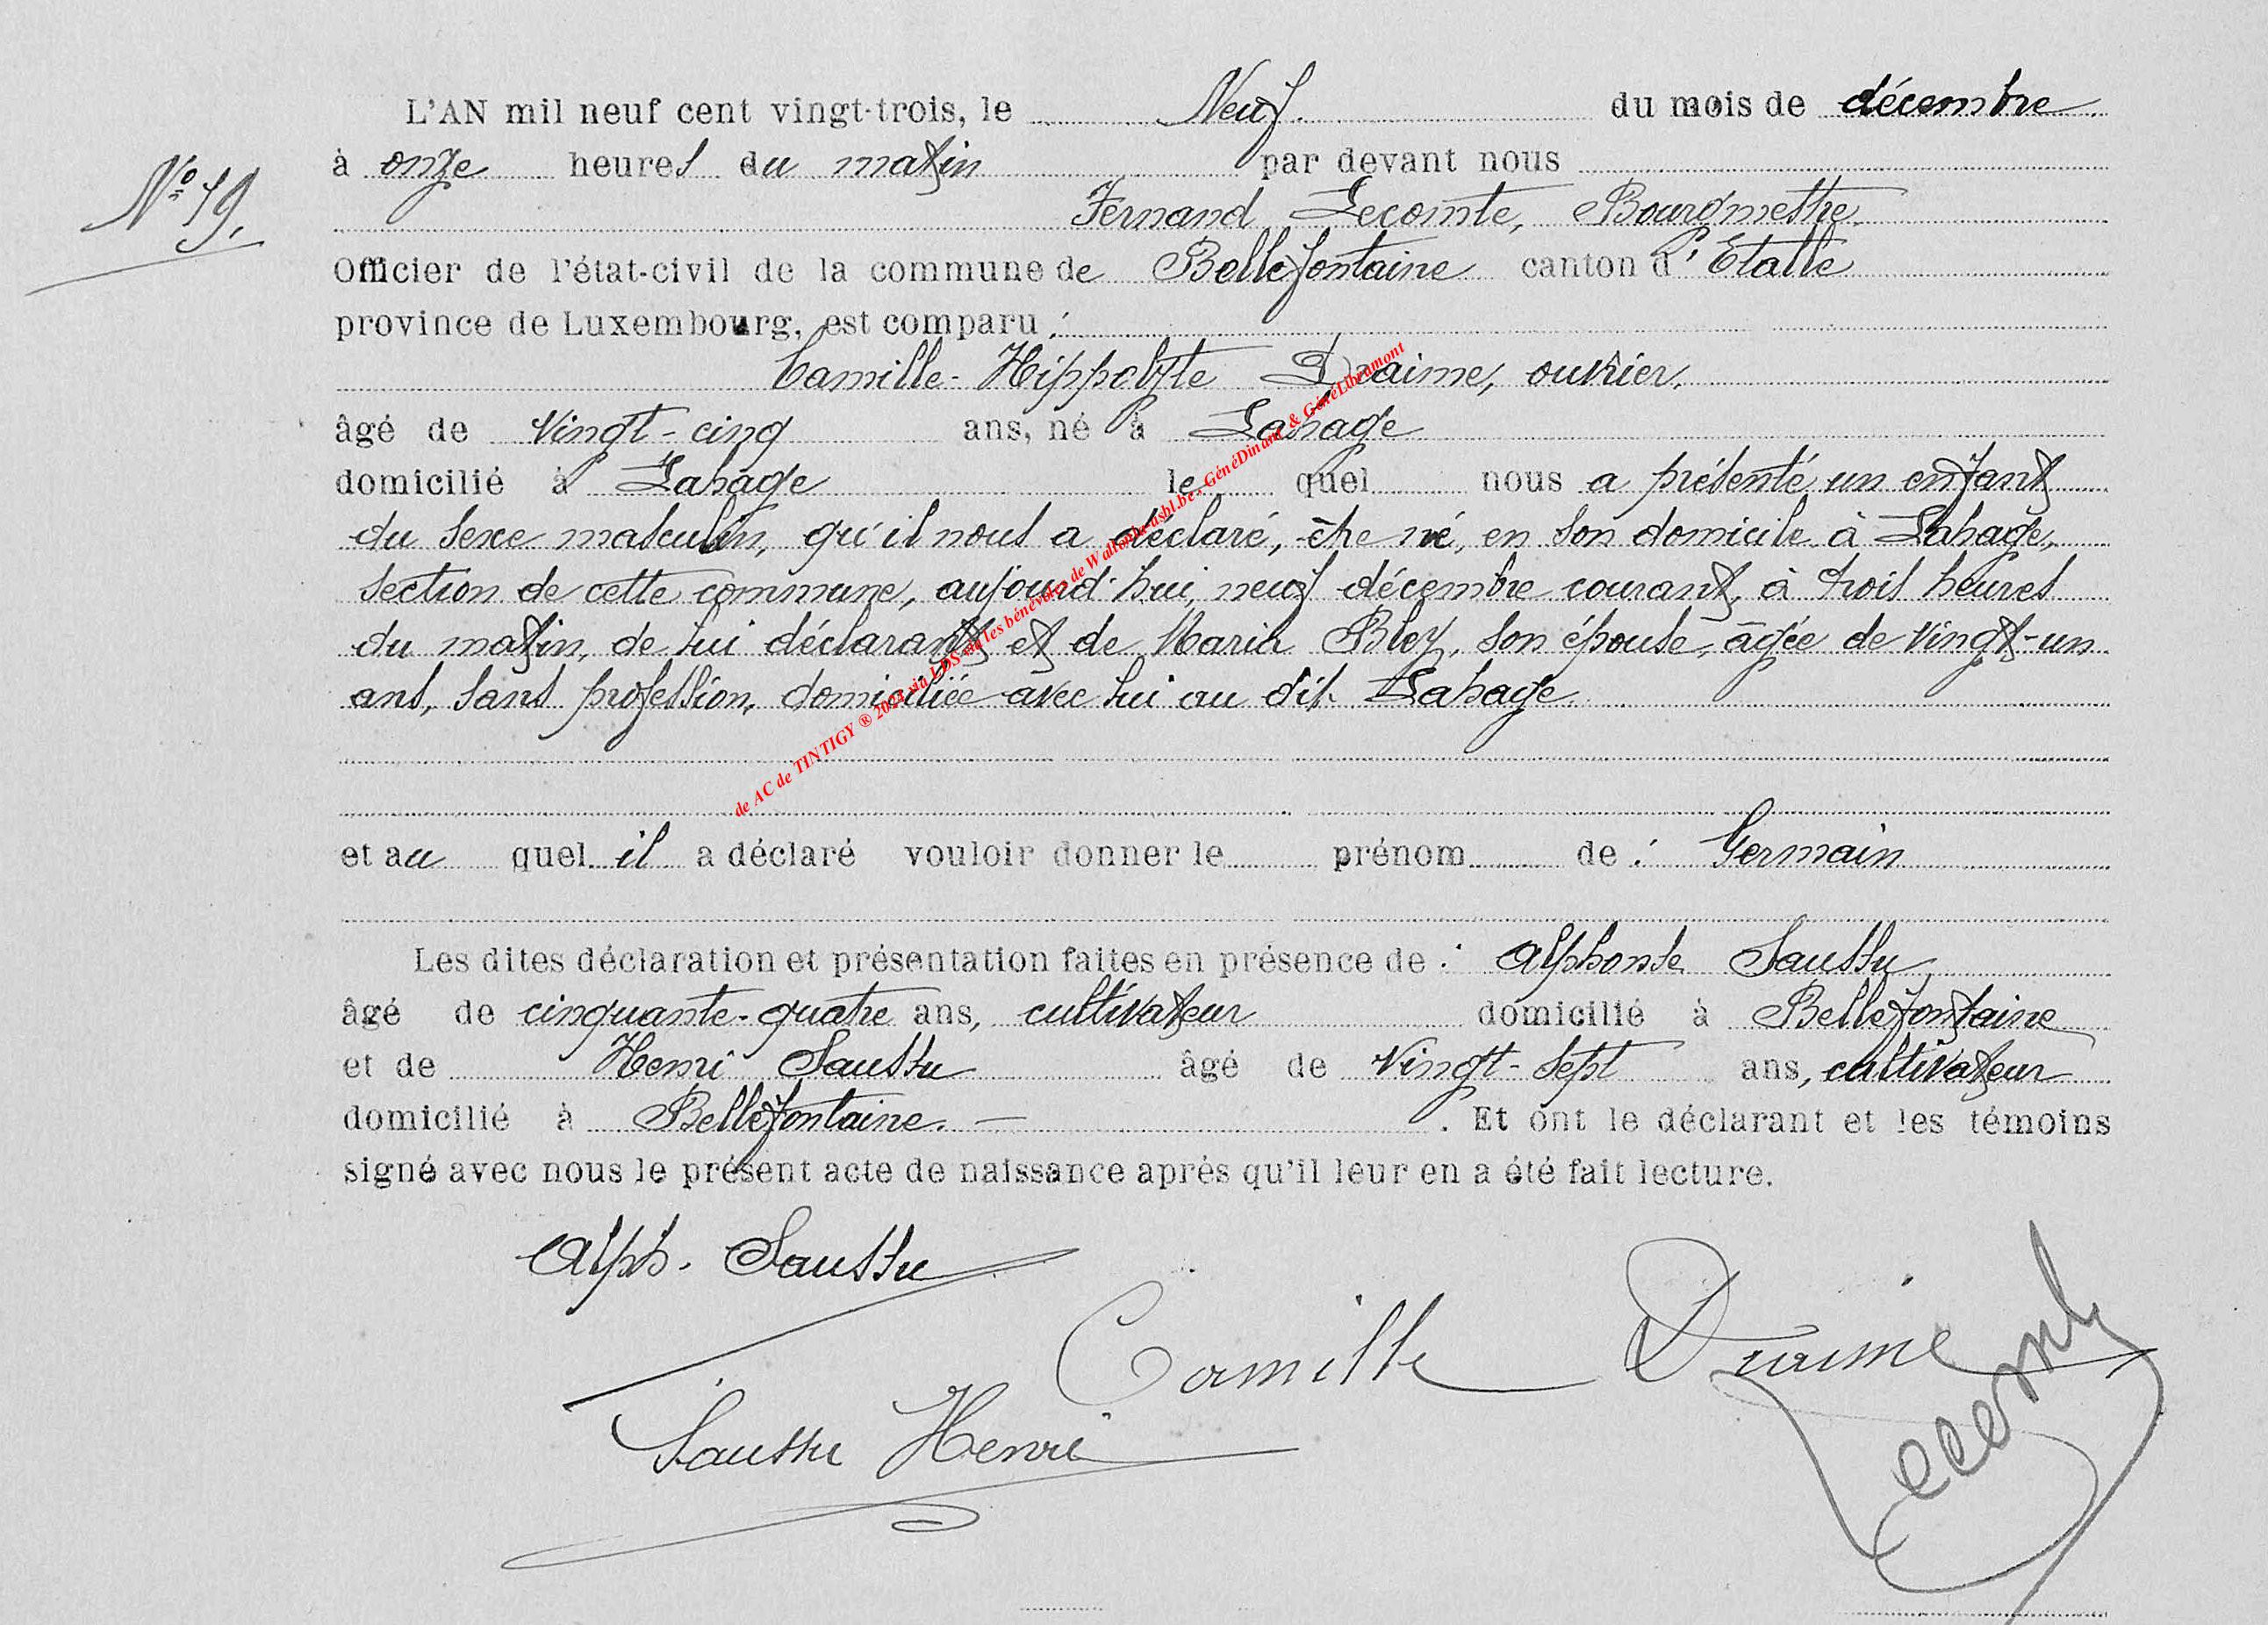 L'AN mil neuf cent vingt-trois, le Neuf. du mois de décembre
N° 19.
à onze heures du matin par devant nous
Fernand Lecomte, Bourgmestre
Officier de l'état-civil de la commune de Bellefontaine canton d'Etalle
province de Luxembourg, est comparu :
Camille-Hippolyte Draime, ouvrier,
âgé de vingt-cinq ans, né à Lahage
domicilié à Lahage le quel nous a présenté un enfant
du sexe masculin, qu'il nous a déclaré, être né, en son domicile à Lahage,
section de cette commune, aujourd'hui, neuf décembre courant, à trois heures
du matin, de lui déclarant et de Maria Bley, son épouse, âgée de vingt-un
ans, sans profession, domiciliée avec lui au dit Lahage.
de AC de TINTIGY ® 2024 via LDS via les bénévoles de Wallonia-asbl.be, GénéDinant & GénéLibramont
et au quel il a déclaré vouloir donner le prénom de : Germain
Les dites déclaration et présentation faites en présence de : Alphonse Saussu,
âgé de cinquante-quatre ans, cultivateur domicilié à Bellefontaine
et de Henri Saussu âgé de vingt-sept ans, cultivateur
domicilié à Bellefontaine. — . Et ont le déclarant et les témoins
signé avec nous le présent acte de naissance après qu'il leur en a été fait lecture.
Alph. Saussu
Camille Draime
Lecomte
Saussu Henri